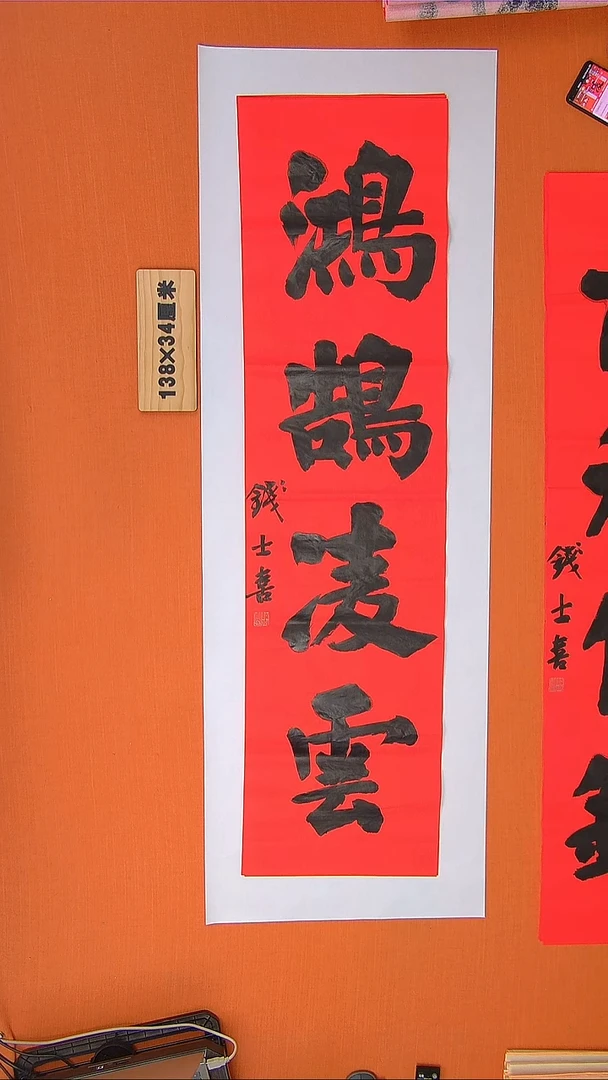 鴻鵠凌雲
錢士喜
138×34厘米
錢士喜